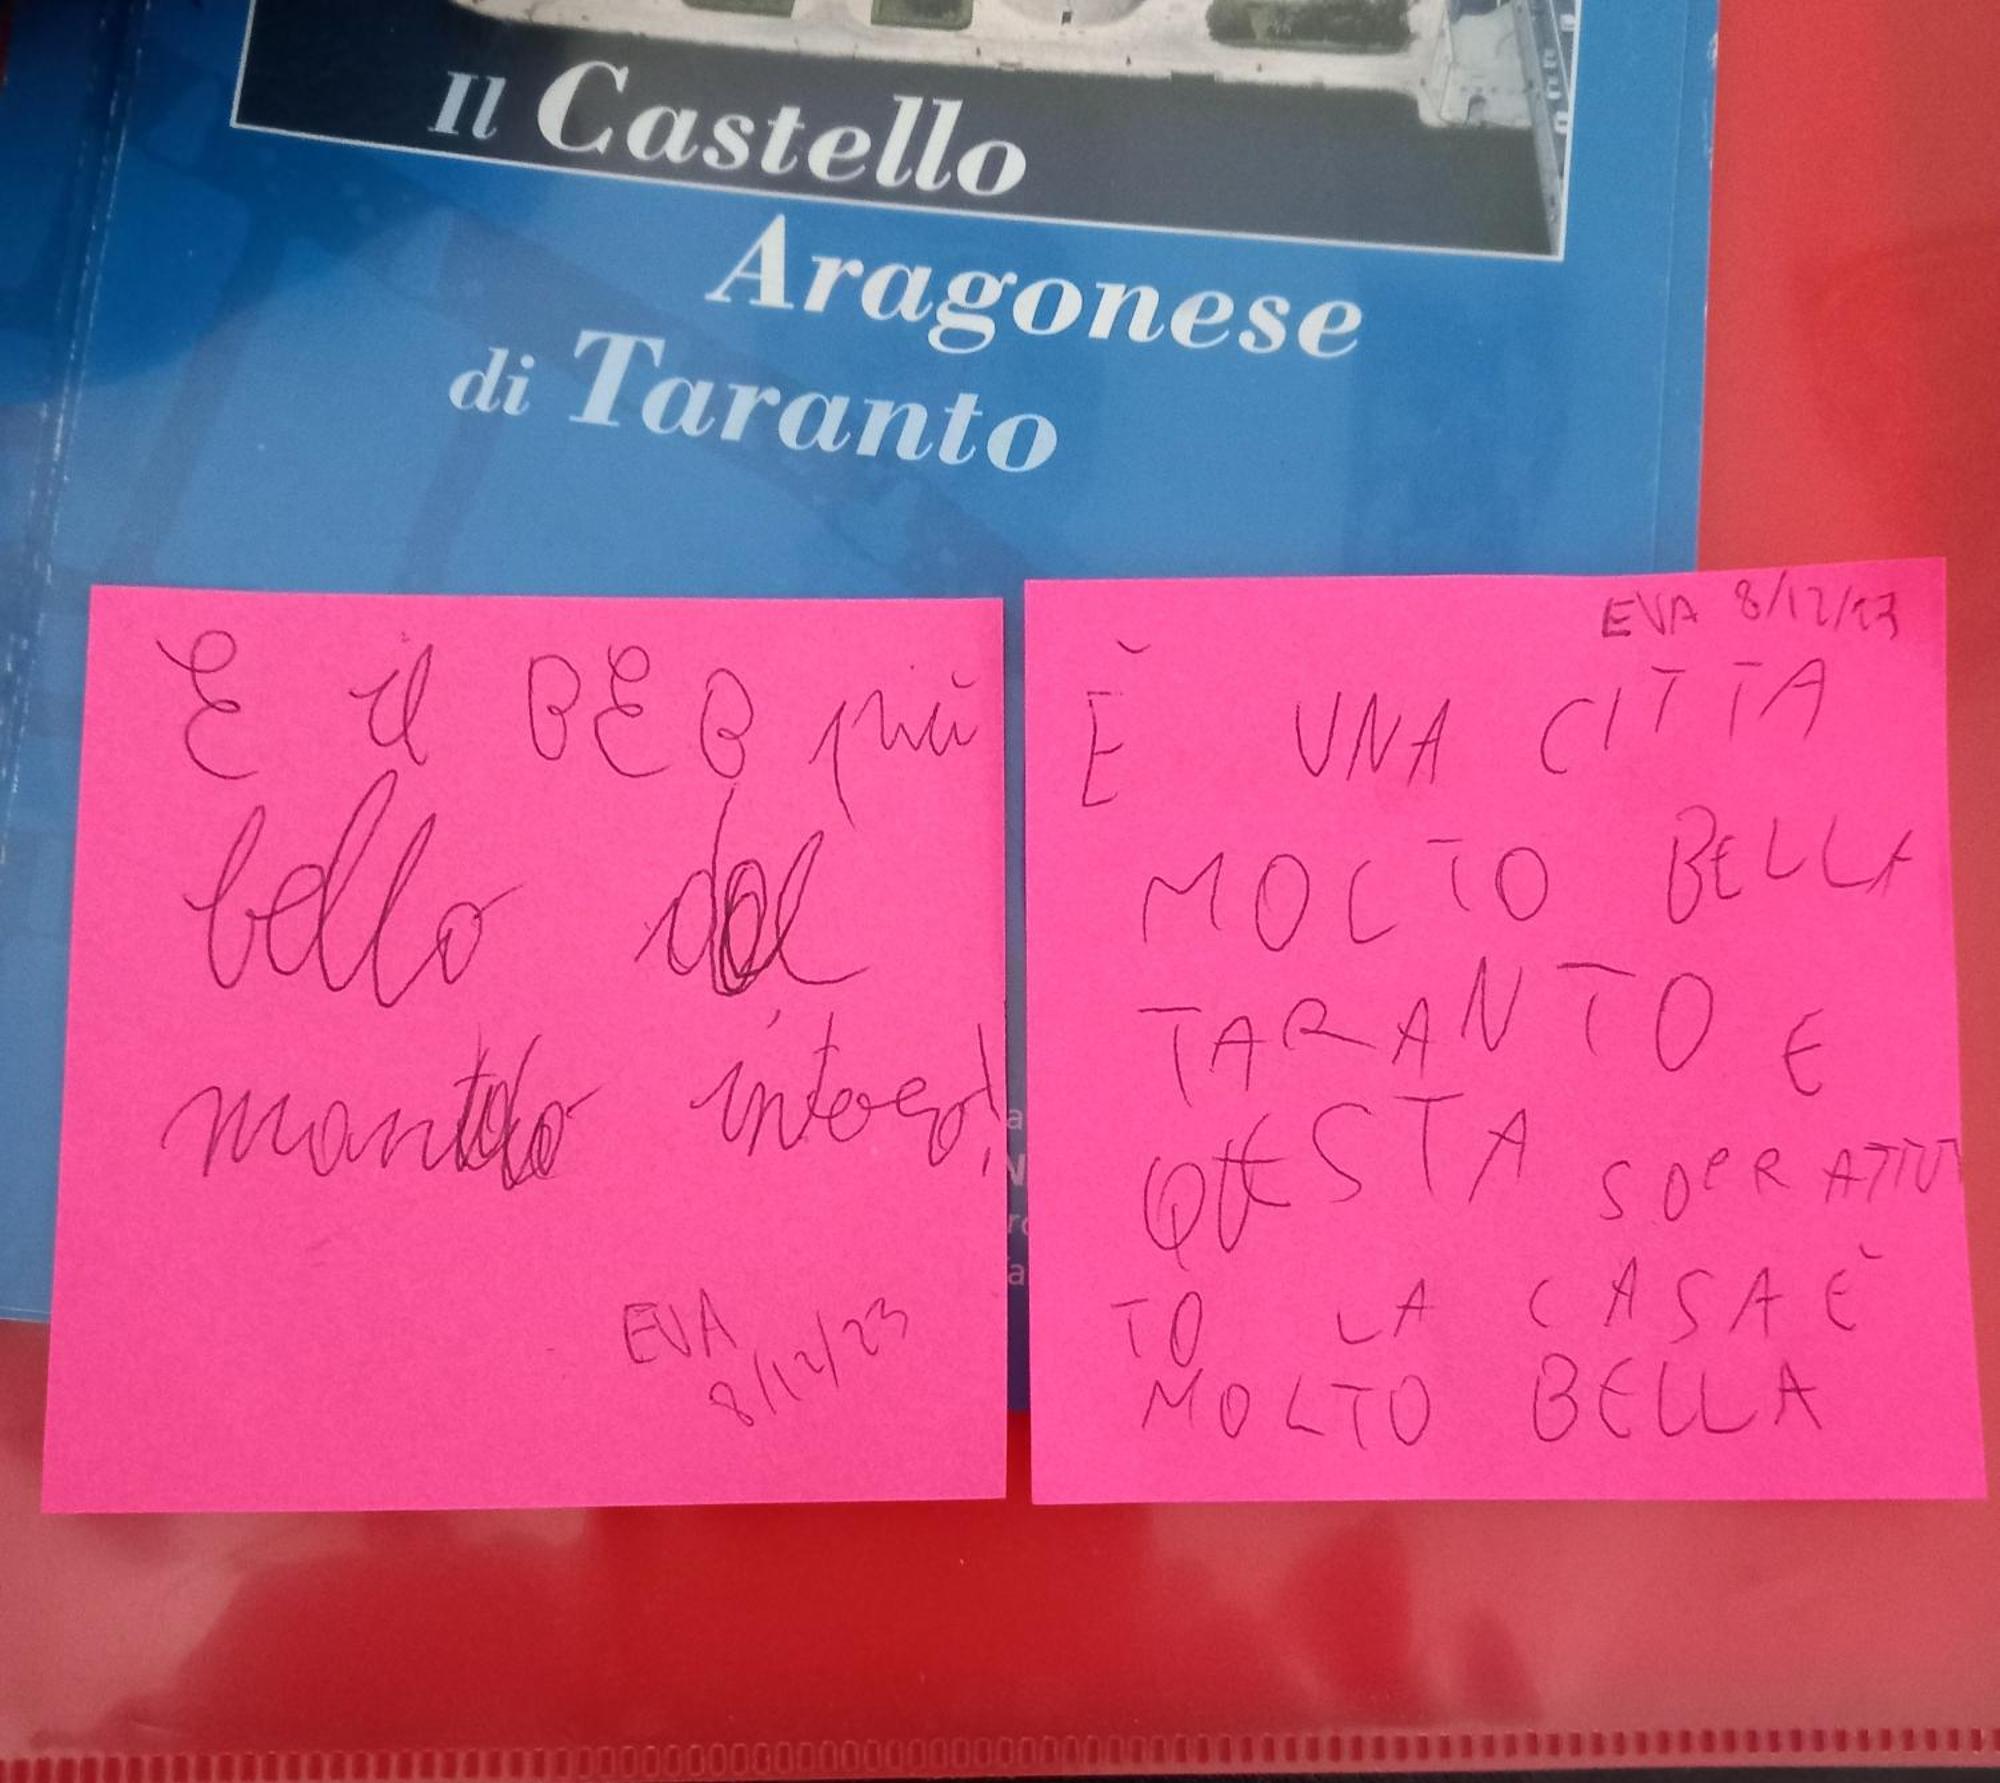 Il Castello
Aragonese
di Taranto
E il BEB più
bello del
mondo intero!
EVA
8/12/23
EVA 8/12/23
È UNA CITTA
MOLTO BELLA
TARANTO E
QUESTA SOPRATTUT
TO LA CASA È
MOLTO BELLA